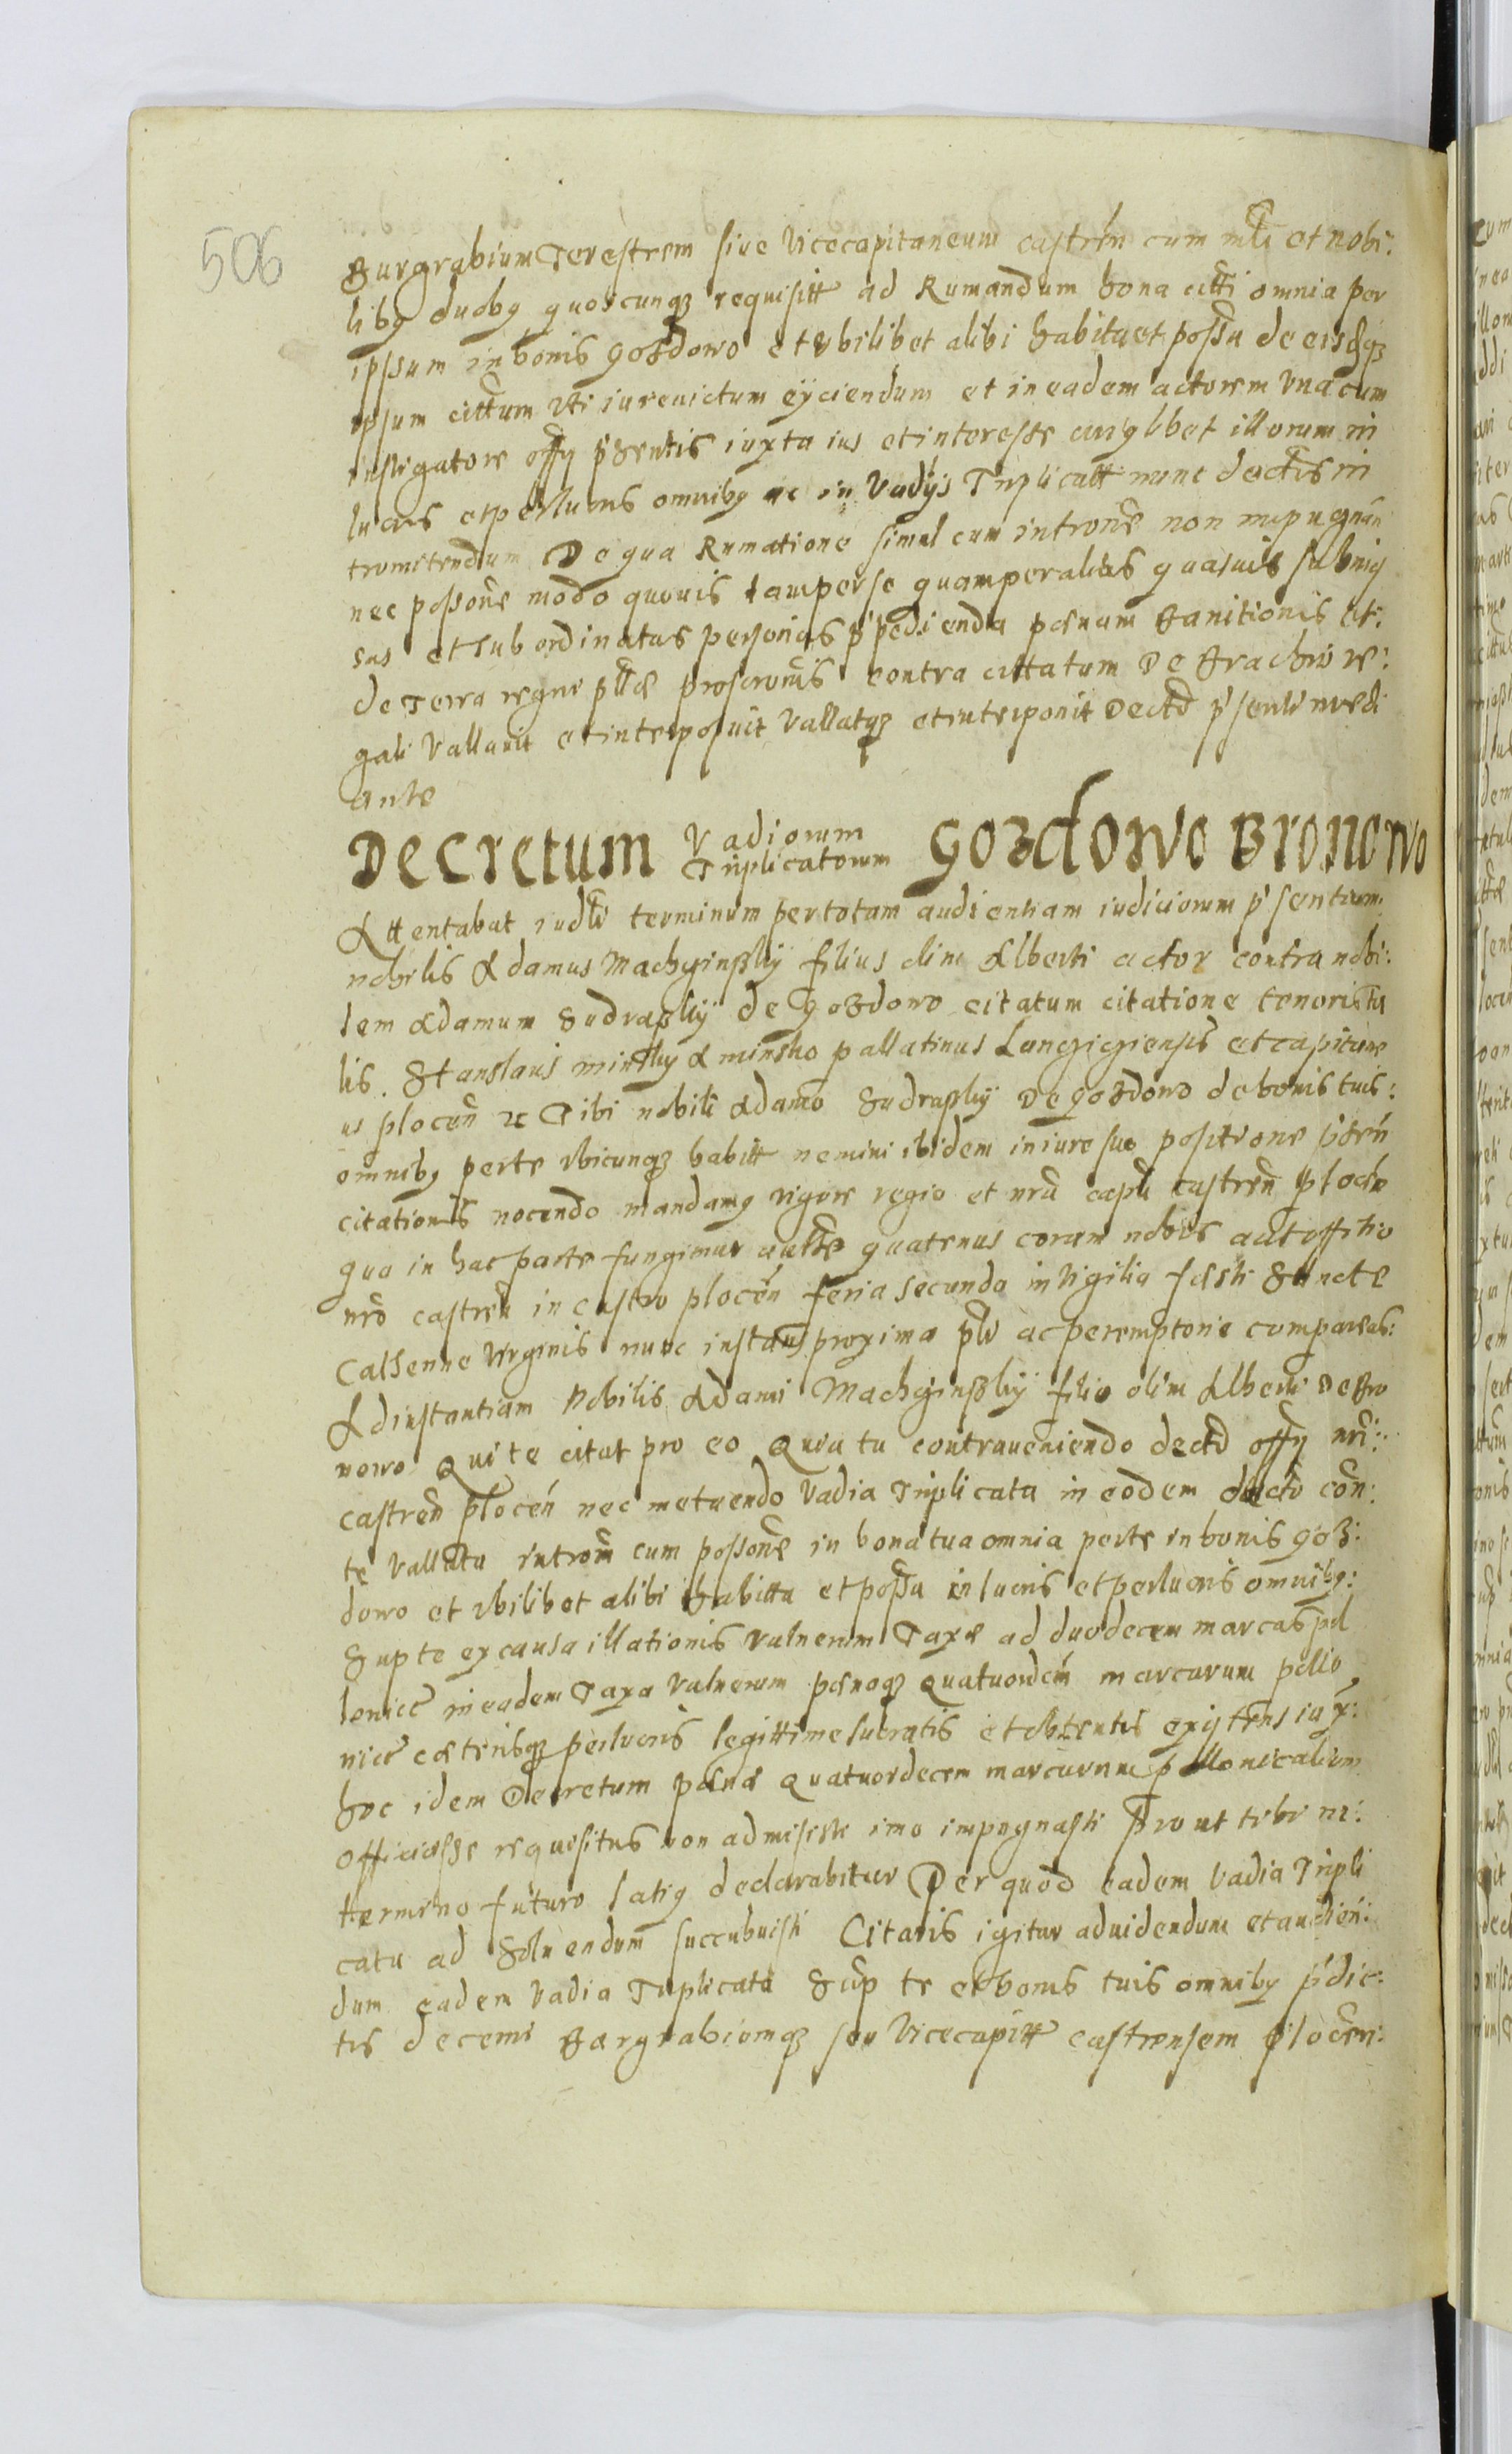 506
Burgrabium Terestrem siue Vicecapitaneum castren cum mltri et nobi:
libg duobg quoscunqz requisitt ad Rumandum bona citti omnia per
ipssum in bonis Gozdowo et vbilibet alibi habita et possa de eisdqz
ipsum cittum vti iureuictum eyciendum et in eadem actorem vna cum
instigatore offy p̃sentis iuxta ius et interesse cuiglibet illorum in
lucris et perlucris omnibg ac in Vadys Triplicatt nunc dectis in
tromittendum De qua Rumatione simul cum introne non impugnan
nec possone modo quouis tam per se quam per alias quasuis submis
sas et subordinatas personas p̃pedienda pœnam Banitionis et:
de Terra regni pllæ proscronis contra cittatum De Brachio re:
gali Vallauit et interposuit Vallatqz et interponit Dectd p̃senti medi
ante
Decretum Vadiorum Triplicatorum Gozdowo Bronowo
Attentabat iudlr terminum per totam audientiam iudiciorum p̃sentium
nobilis Adamus Machczinsky filius olim Alberti actor contra nobi:
lem Adamum Sudrasky de Gozdowo citatum citatione tenoris ta
lis. Stanslaus minsky A minsko pallatinus Lanciciensis et capitane
us plocen zc Tibi nobili Adamo Sudrasky De Gozdowo de bonis tuis:
omnibg perte vbicunqz habitt nemini ibidem in iure suo positione p̃sen
citationis nocendo mandamg vigore regio et nra capli castren plocen
qua in hac parte fungimur autte quatenus coram nobis aut offitio
nro castren in castro plocen feria secunda in vigilia festi Sancte
Catherine virginis nunc instans proxima plr ac peremptorie compareas:
Ad instantiam Nobilis Adami Machczinsky filio olim Alberti de Bro
nowo Qui te citat pro eo Quia tu contraueniendo dectd offy nri:
castren plocen nec metuendo Vadia Triplicata in eodem decto con:
te Vallata introm cum possone in bona tua omnia perte in bonis Goz:
dowo et vbilibet alibi habitta et possa in lucris et perlucris omnibg:
Sup te ex causa illationis vulnerum Taxæ ad duodecem marcas pol
lonice in eadem Taxa vulnerum pœnaqz quatuordcem marcarum pollo
nice cæterisqz perlucris legittime lucratis et obtentis exystens iux:
hoc idem Decretum pœnæ quatuordecem marcarum pollonicalium
officiosse requisitus non admisisti imo impugnasti prout tibi in:
termino futuro latig declarabitur Per quod eadem Vadia Tripli
cata ad Soluendum succubuisti Citaris igitur aduidendum et audien:
dum eadem Vadia Triplicata Sup te et bonis tuis omnibg p̃dic:
tis decerni Burgrabiumqz seu Vicecapitt castrensem plocen: